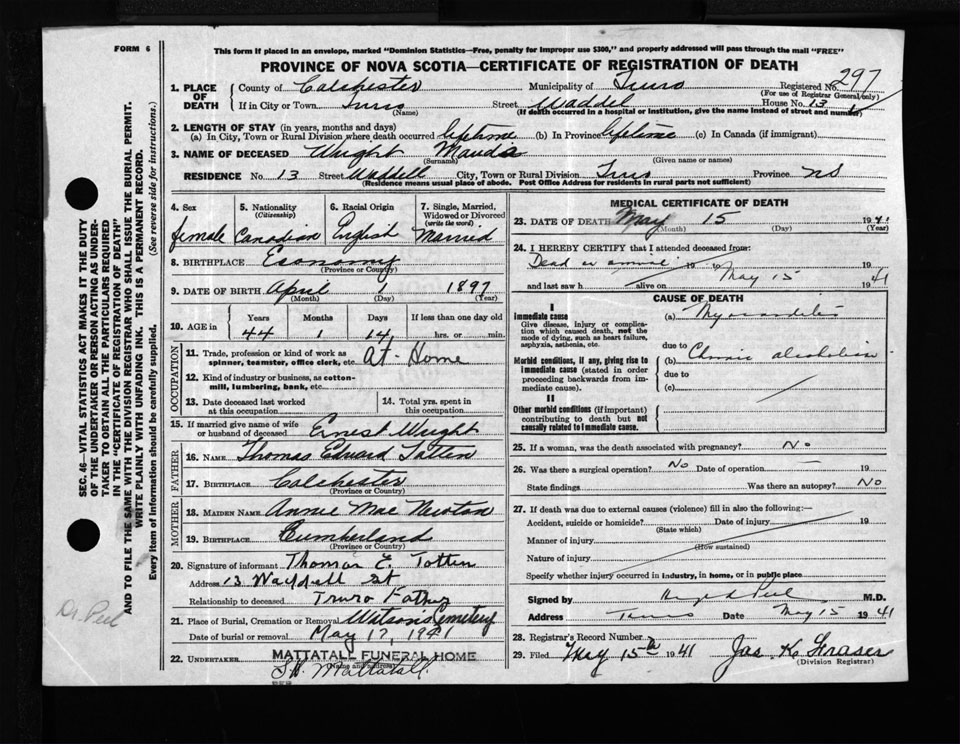 FORM 6
This form if placed in an envelope, marked "Dominion Statistics—Free, penalty for improper use $300," and properly addressed will pass through the mail "FREE"
PROVINCE OF NOVA SCOTIA—CERTIFICATE OF REGISTRATION OF DEATH
1. PLACE OF DEATH
County of Colchester Municipality of Truro Registered No. 297
(For use of Registrar General only)
If in City or Town Truro Street Waddel House No. 13
(Name) (If death occurred in a hospital or institution, give the name instead of street and number)
2. LENGTH OF STAY (in years, months and days)
(a) In City, Town or Rural Division where death occurred lifetime (b) In Province lifetime (c) In Canada (if immigrant)
3. NAME OF DECEASED Wright Maudie
(Surname) (Given name or names)
RESIDENCE No. 13 Street Waddell City, Town or Rural Division Truro Province NS
(Residence means usual place of abode. Post Office Address for residents in rural parts not sufficient)
4. Sex 5. Nationality (Citizenship) 6. Racial Origin 7. Single, Married, Widowed or Divorced (write the word)
female Canadian English Married
8. BIRTHPLACE Economy
(Province or Country)
9. DATE OF BIRTH April 1 1897
(Month) (Day) (Year)
10. AGE in Years Months Days If less than one day old
44 1 14 hrs. or min.
OCCUPATION
11. Trade, profession or kind of work as spinner, teamster, office clerk, etc. At-Home
12. Kind of industry or business, as cotton-mill, lumbering, bank, etc.
13. Date deceased last worked at this occupation 14. Total yrs. spent in this occupation
15. If married give name of wife or husband of deceased Ernest Wright
FATHER
16. NAME Thomas Edward Totten
17. BIRTHPLACE Colchester
(Province or Country)
MOTHER
18. MAIDEN NAME Annie Mae Newton
19. BIRTHPLACE Cumberland
(Province or Country)
20. Signature of informant Thomas E. Totten
Address 13 Waddell St
Relationship to deceased Truro Father
21. Place of Burial, Cremation or Removal Watson Cemetery
Date of burial or removal May 17, 1941
22. UNDERTAKER MATTATALL FUNERAL HOME
(Name and address)
Mattatall.
PER
MEDICAL CERTIFICATE OF DEATH
23. DATE OF DEATH May 15 1941
(Month) (Day) (Year)
24. I HEREBY CERTIFY that I attended deceased from:
Dead on arrival 19 to May 15 19
and last saw h alive on 1941
CAUSE OF DEATH
I
Immediate cause
Give disease, injury or complication which caused death, not the mode of dying, such as heart failure, asphyxia, asthenia, etc.
(a) Myocarditis
due to
Morbid conditions, if any, giving rise to immediate cause (stated in order proceeding backwards from immediate cause).
(b) Chronic alcoholism
due to
(c)
II
Other morbid conditions (if important) contributing to death but not causally related to immediate cause.
25. If a woman, was the death associated with pregnancy? No
26. Was there a surgical operation? No Date of operation — 19
State findings Was there an autopsy? No
27. If death was due to external causes (violence) fill in also the following:—
Accident, suicide or homicide? Date of injury 19
(State which)
Manner of injury
(How sustained)
Nature of injury
Specify whether injury occurred in industry, in home, or in public place
Signed by Peel M.D.
Address Truro Date May 15 1941
28. Registrar's Record Number
29. Filed May 15th 1941 Jas. K. Fraser
(Division Registrar)
SEC. 46—VITAL STATISTICS ACT MAKES IT THE DUTY
OF THE UNDERTAKER OR PERSON ACTING AS UNDER-
TAKER TO OBTAIN ALL THE PARTICULARS REQUIRED
IN THE "CERTIFICATE OF REGISTRATION OF DEATH"
AND TO FILE THE SAME WITH THE DIVISION REGISTRAR WHO SHALL ISSUE THE BURIAL PERMIT.
WRITE PLAINLY WITH UNFADING INK. THIS IS A PERMANENT RECORD.
Every item of information should be carefully supplied. (See reverse side for instructions.)
Dr. Peel